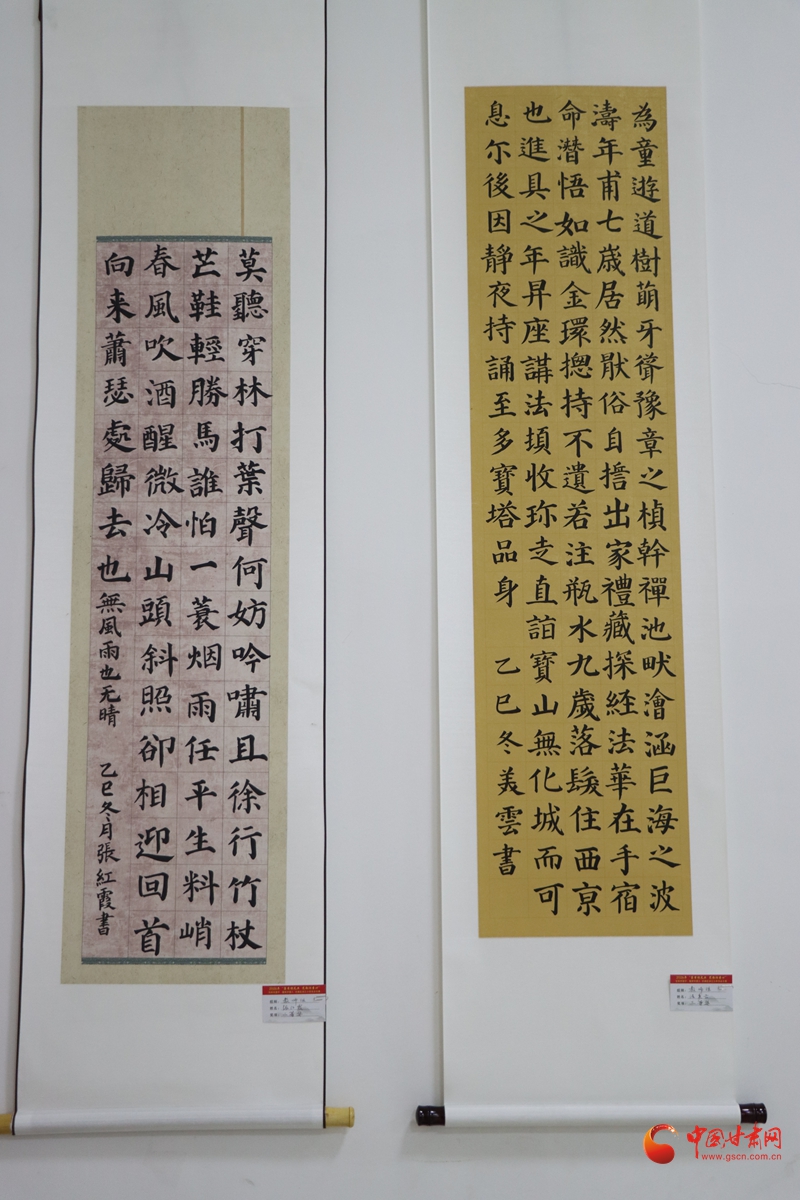 為童遊道樹萌牙聳豫章之楨幹禪池畎澮涵巨海之波
濤年甫七歲居然猒俗自擔出家禮藏探経法華在手宿
命潛悟如識金環揔持不遺若注瓶水九歲落髮住西京
也進具之年昇座講法頃收珎走直詣寶山無化城而可
息尒後因靜夜持誦至多寶塔品身 乙巳冬美雲書
莫聽穿林打葉聲何妨吟嘯且徐行竹杖
芒鞋輕勝馬誰怕一蓑烟雨任平生料峭
春風吹酒醒微冷山頭斜照卻相迎回首
向来蕭瑟處歸去也無風雨也无晴 乙巳冬月張紅霞書
中国甘肃网
www.gscn.com.cn